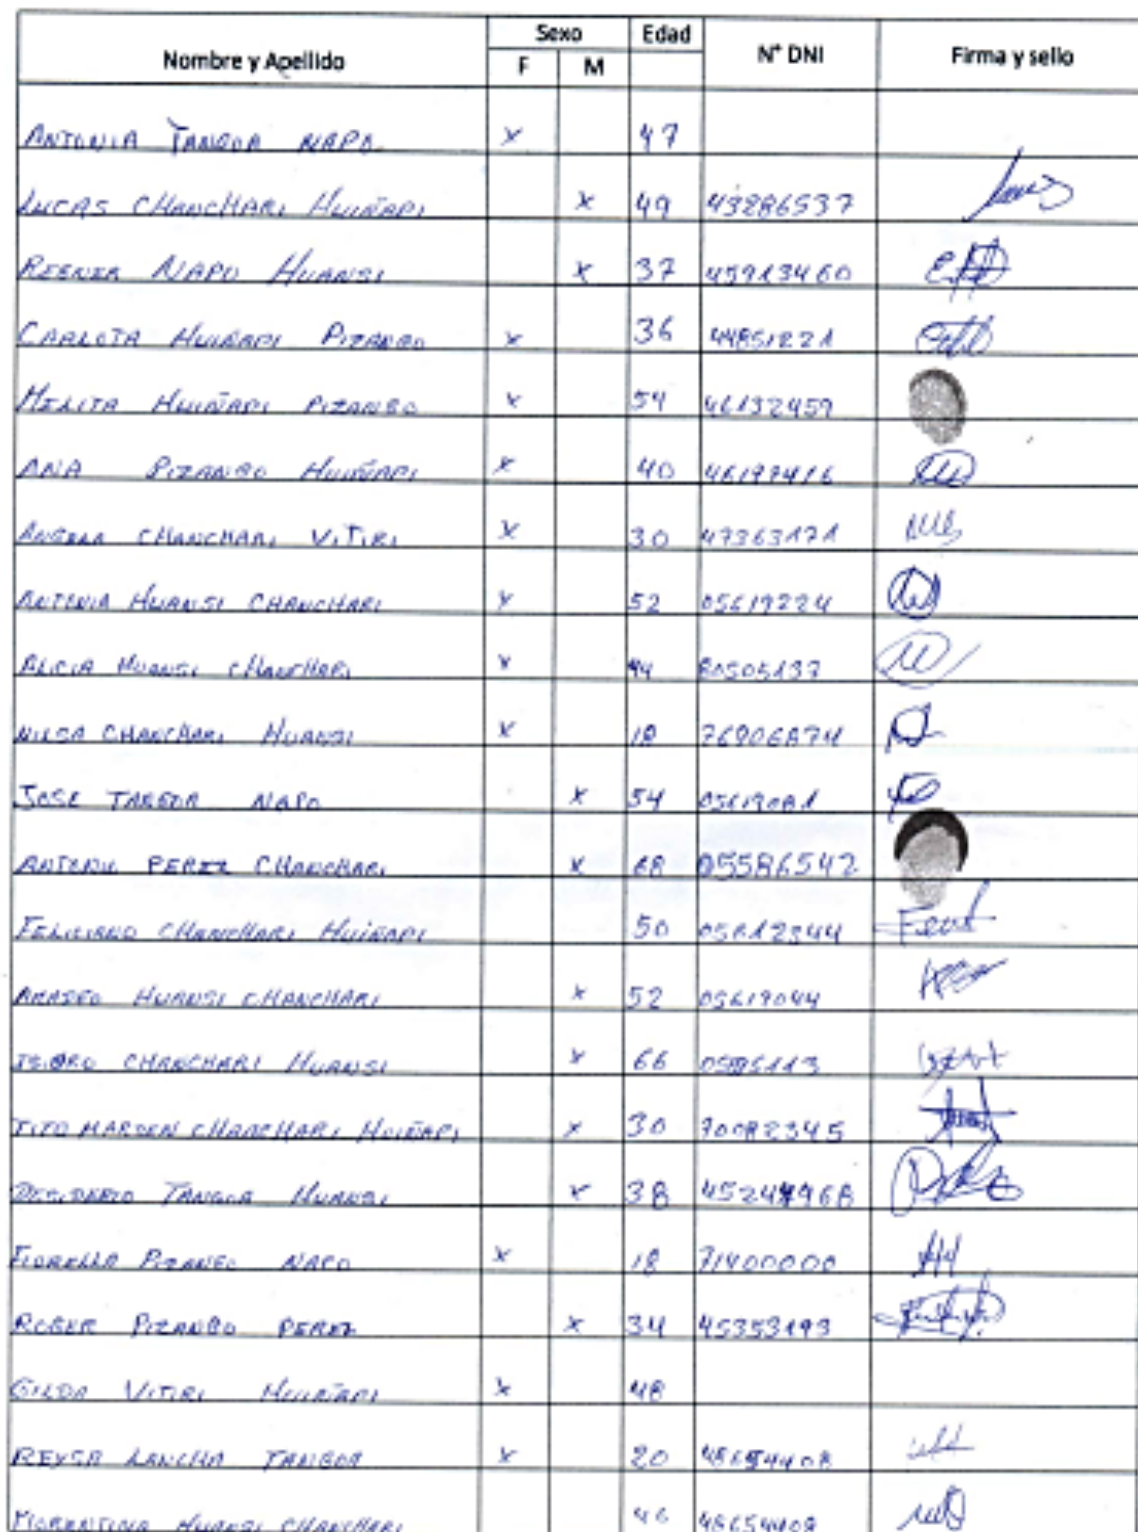 Nombre y Apellido Sexo Edad N° DNI Firma y sello
F M
ANTONIA TANGOA NAPO x 47
LUCAS CHANCHARI HUIÑAPI x 49 43286537
REGNER NAPO HUANSI x 37 45913460
CARLOTA HUIÑAPI PIZANGO x 36 44851221
MELITA HUIÑAPI PIZANGO x 54 46132459
ANA PIZANGO HUIÑAPI x 40 46197416
ANGELA CHANCHARI VITIRI x 30 47363171
ANTONIA HUANSI CHANCHARI x 52 05619224
ALICIA HUANSI CHANCHARI x 44 80505137
NILSA CHANCHARI HUANSI x 18 76906874
JOSE TANGOA NAPO x 54 05619081
ANTONIO PEREZ CHANCHARI x 68 05586542
FELICIANO CHANCHARI HUIÑAPI 50 05612344
AMASEO HUANSI CHANCHARI x 52 05619044
CHANCHARI HUANSI x 66
TITO MARDEN CHANCHARI HUIÑAPI x 30 70082345
DESIDERIO TANGOA HUANSI x 38
FIORELLA PIZANGO NAPO x 18 71400000
ROGER PIZANGO PEREZ x 34 45353193
GILDA VITIRI HUIÑAPI x 48
REYSA LANCHA TANGOA x 20 48654408
FLORENTINA HUANSI CHANCHARI 46 48654408